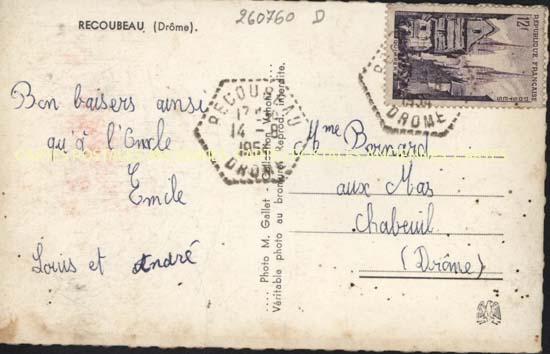 260760 D
RECOUBEAU (Drôme).
Bon baisers ainsi
qu'à l'Oncle
Emile
Louis et André
RECOUBEAU
14 - 8
DROME
Photo M. Gallet -
Véritable photo au bromure Reprod. interdite.
REPUBLIQUE FRANÇAISE
12F
DROME
Mme Bernard
aux Mas
Chabeuil
(Drôme)